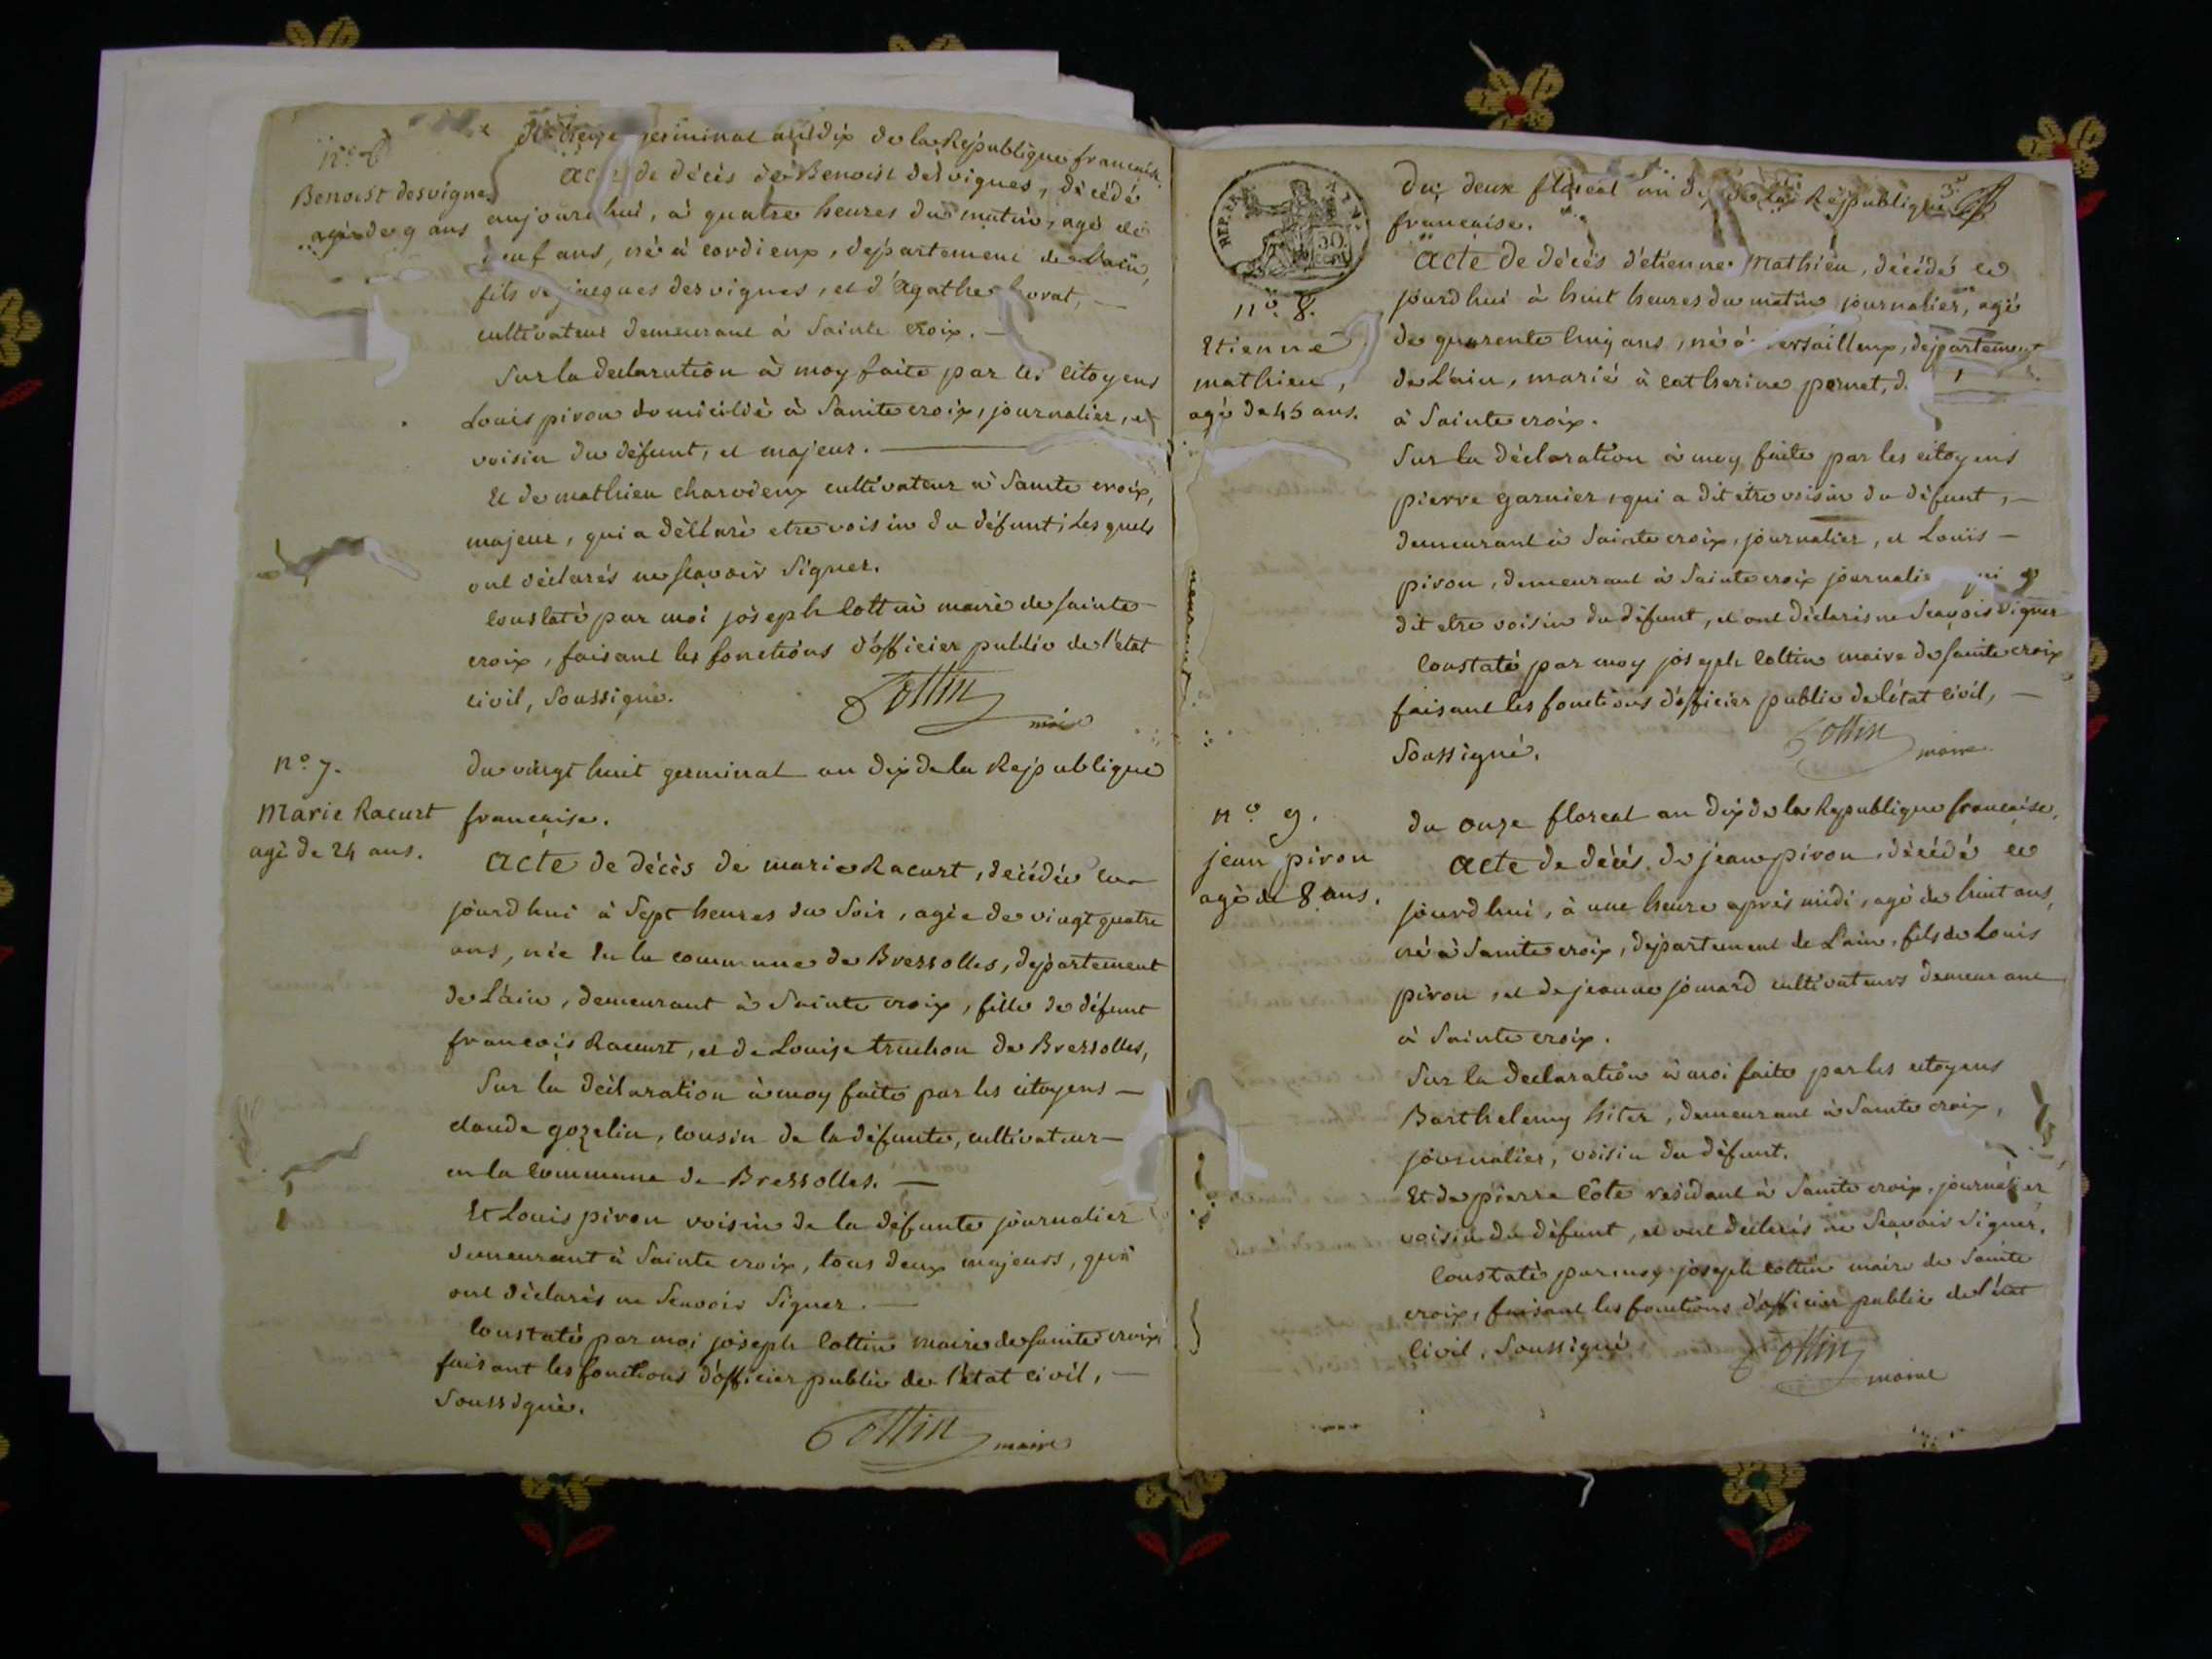 n.o 6
Benoist desvignes
agé de 9 ans
germinal an dix de la Republique francaise.
Acte de décès de Benoist desvignes, décédé
aujourdhui, à quatre heures du matin, agé de
neuf ans, né à cordieux, departement de Lain,
fils de jacques desvignes, et d'Agathe
cultivateur demeurant à Sainte Croix. —
Sur la declaration à moy faite par les citoyens
Louis piron domicilié à Sainte croix, journalier, et
voisin du défunt, et majeur. —
Et de mathieu charvieux cultivateur à Sainte croix,
majeur, qui a déclaré etre voisin du défunt, Les quels
ont déclarés ne scavoir Signer.
Constaté par moi joseph Cottin maire de Sainte
croix, faisant les fonctions d'officier public de l'état
civil, Soussigné.
Cottin
maire
n.o 7.
Marie Racurt
agé de 24 ans.
du vingt huit germinal an dix de la Republique
francaise.
Acte de décès de marie Racurt, décédée ce
jourdhui à Sept heures du Soir, agée de vingt quatre
ans, née en la commune de Bressolles, departement
de Lain, demeurant à Sainte croix, fille de défunt
francois Racurt, et de Louise truchon de Bressolles,
Sur la déclaration à moy faite par les citoyens —
claude gozelin, cousin de la défunte, cultivateur —
en la Commune de Bressolles. —
Et Louis piron voisin de la défunte journalier
demeurant à Sainte croix, tous deux majeurs, qui
ont déclarés ne Scavoir Signer. —
Constaté par moi joseph Cottin maire de Sainte croix
faisant les fonctions d'officier public de l'état civil, —
Soussigné.
Cottin
maire
REP. FRA
50
cent
3.e
n.o 8.
Etienne
mathieu,
agé de 45 ans.
du deux floréal an dix de la Republique
française.
Acte de décès d'etienne Mathieu, décédé ce
jourdhui à huit heures du matin journalier, agé
de quarente cinq ans, né à versailleux, departement
de Lain, marié à catherine pernet, d
à Sainte croix.
Sur la déclaration à moy faite par les citoyens
pierre garnier, qui a dit etre voisin du défunt, —
demeurant à Sainte croix, journalier, et Louis —
piron, demeurant à Sainte croix journalie qui a
dit etre voisin du défunt, et ont déclarés ne Scavoir Signer
Constaté par moy joseph Cottin maire de Sainte croix
faisant les fonctions d'officier public de l'état Civil, —
Soussigné.
Cottin
maire
n.o 9.
jean piron
agé de 8 ans.
du onze floreal an dix de la Republique francaise.
Acte de décès de jean piron, décédé ce
jourdhui, à une heure après midi, agé de huit ans,
né à Sainte croix, departement de Lain, fils de Louis
piron, et de jeanne jomard cultivateurs demeurant
à Sainte croix.
Sur la declaration à moi faite par les citoyens
Barthelemy hiter, demeurant à Sainte croix,
journalier, voisin du défunt.
Et de pierre Cote residant à Sainte croix, journalier,
voisin du défunt, et ont déclarés ne Scavoir Signer.
Constaté par moy joseph Cottin maire de Sainte
croix, faisant les fonctions d'officier public de l'état
Civil, Soussigné
Cottin
maire